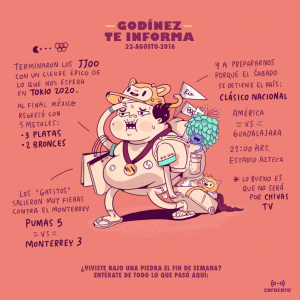 GODÍNEZ
TE INFORMA
22-AGOSTO-2016
TERMINARON LOS JJOO
CON UN CIERRE ÉPICO DE
LO QUE NOS ESPERA
EN TOKIO 2020.
AL FINAL MÉXICO
REGRESÓ CON
5 METALES:
• 3 PLATAS
• 2 BRONCES
LOS "GATITOS"
SALIERON MUY FIERAS
CONTRA EL MONTERREY
PUMAS 5
= VS =
MONTERREY 3
Y A PREPARARNOS
PORQUE EL SABADO
SE DETIENE EL PAÍS:
CLÁSICO NACIONAL
AMÉRICA
= VS =
GUADALAJARA
21:00 HRS.
ESTADIO AZTECA
* LO BUENO ES
QUE NO SERÁ
POR CHIVAS
TV
Rio
¿VIVISTE BAJO UNA PIEDRA EL FIN DE SEMANA?
ENTÉRATE DE TODO LO QUE PASÓ AQUÍ:
cerocero